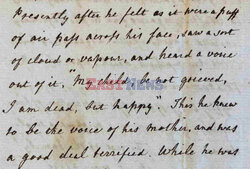 Presently after he felt as it were a puff
of air pass across his face, saw a sort
of cloud or vapour, and heard a voice
out of it, "My child, be not grieved,
EAST NEWS
I am dead, but happy". This he knew
to be the voice of his mother, and was
a good deal terrified. While he was